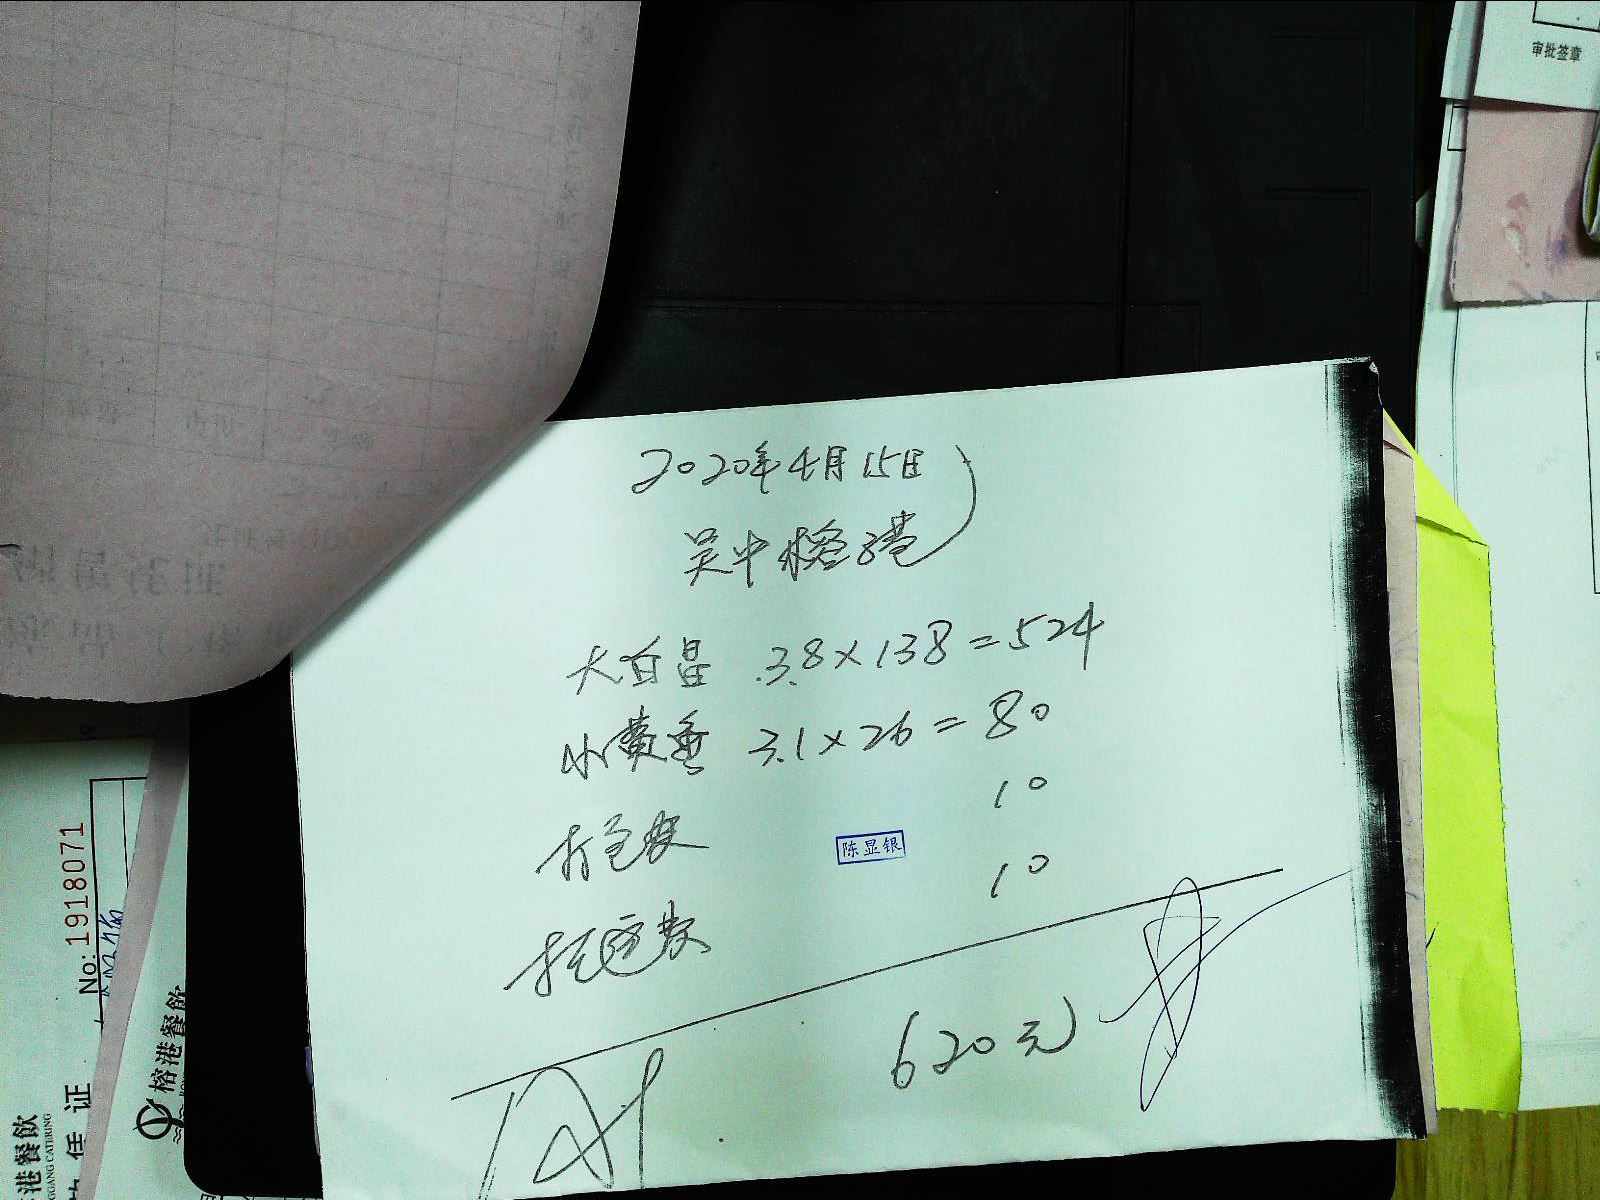 2020年4月15日
吴中榕港
大白昌 3.8×138=524
小黄鱼 3.1×26=80
打包费 10
托运费 10
620元
陈显银
审批签章
No:1918071
榕港餐飲
港餐飲
GGANG CATERING
责任证